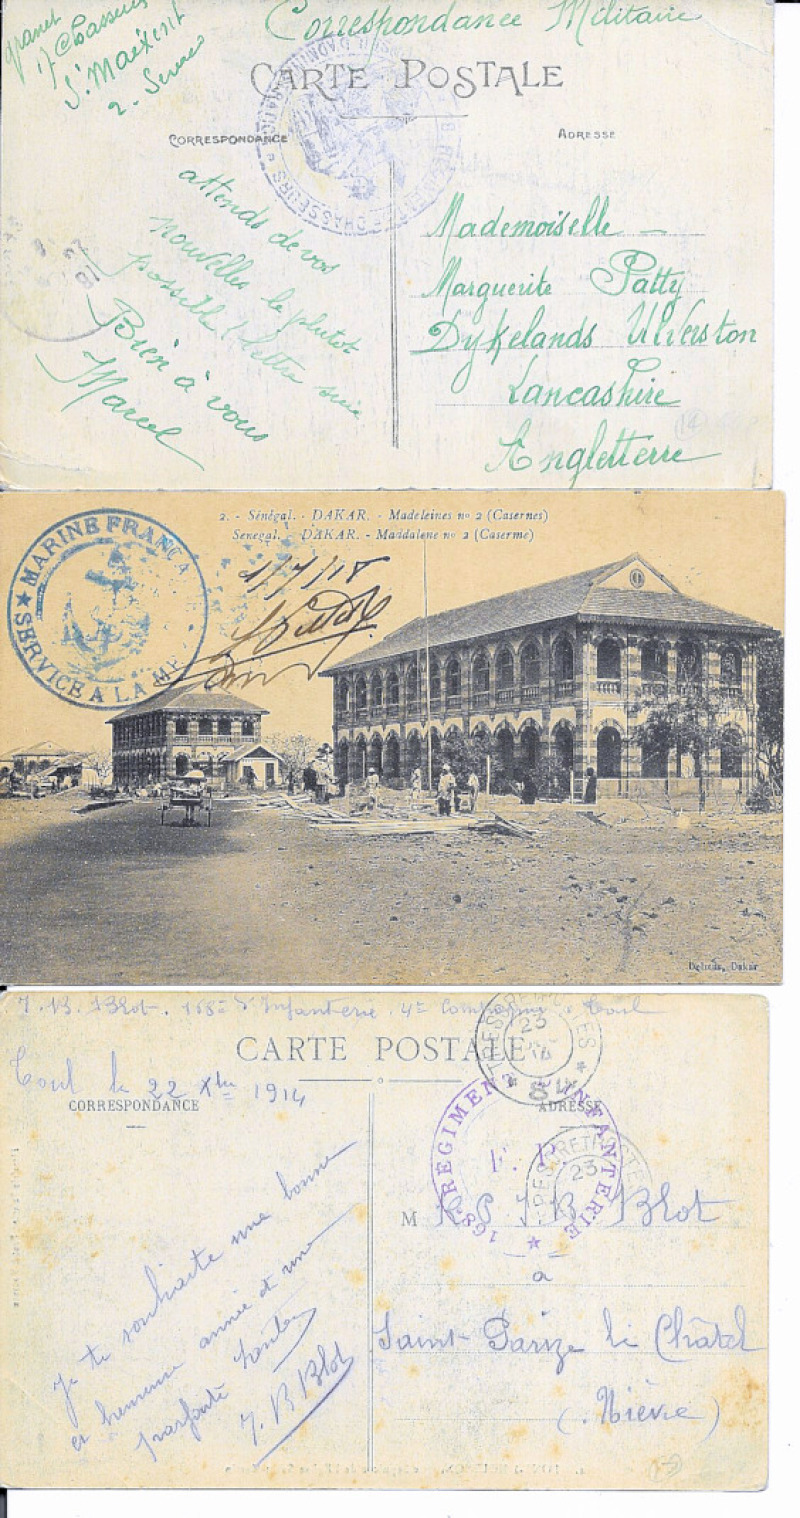 Correspondance Militaire
granet
17 Chasseurs
St Maixent
2. Sevres
CARTE POSTALE
CORRESPONDANCE
ADRESSE
CHASSEURS
attends de vos
nouvelles le plutot
possible lettre suit
Bien à vous
Marcel
Mademoiselle -
Marguerite Patty
Dykelands Ulverston
Lancashire
Angletterre
14
2. - Sénégal. - DAKAR. - Madeleines no 2 (Casernes)
Senegal. - DAKAR. - Maddalene no 2 (Caserme)
★ MARINE FRANÇA
★ SERVICE A LA ME
1/7/18
Dakar
J. B. Blot. 168e d'Infanterie. 4e Compagnie Toul
CARTE POSTALE
Toul le 22 Xbre 1914
CORRESPONDANCE
ADRESSE
TRESOR ET POSTES
23
14
★ 8 ★
168e RÉGIMENT D'INFANTERIE ★
TRESOR ET POSTES
23
M J B Blot
a
Saint Parize le Châtel
(Nièvre)
Je te souhaite une bonne
et heureuse année et une
parfaite santé
J. B Blot